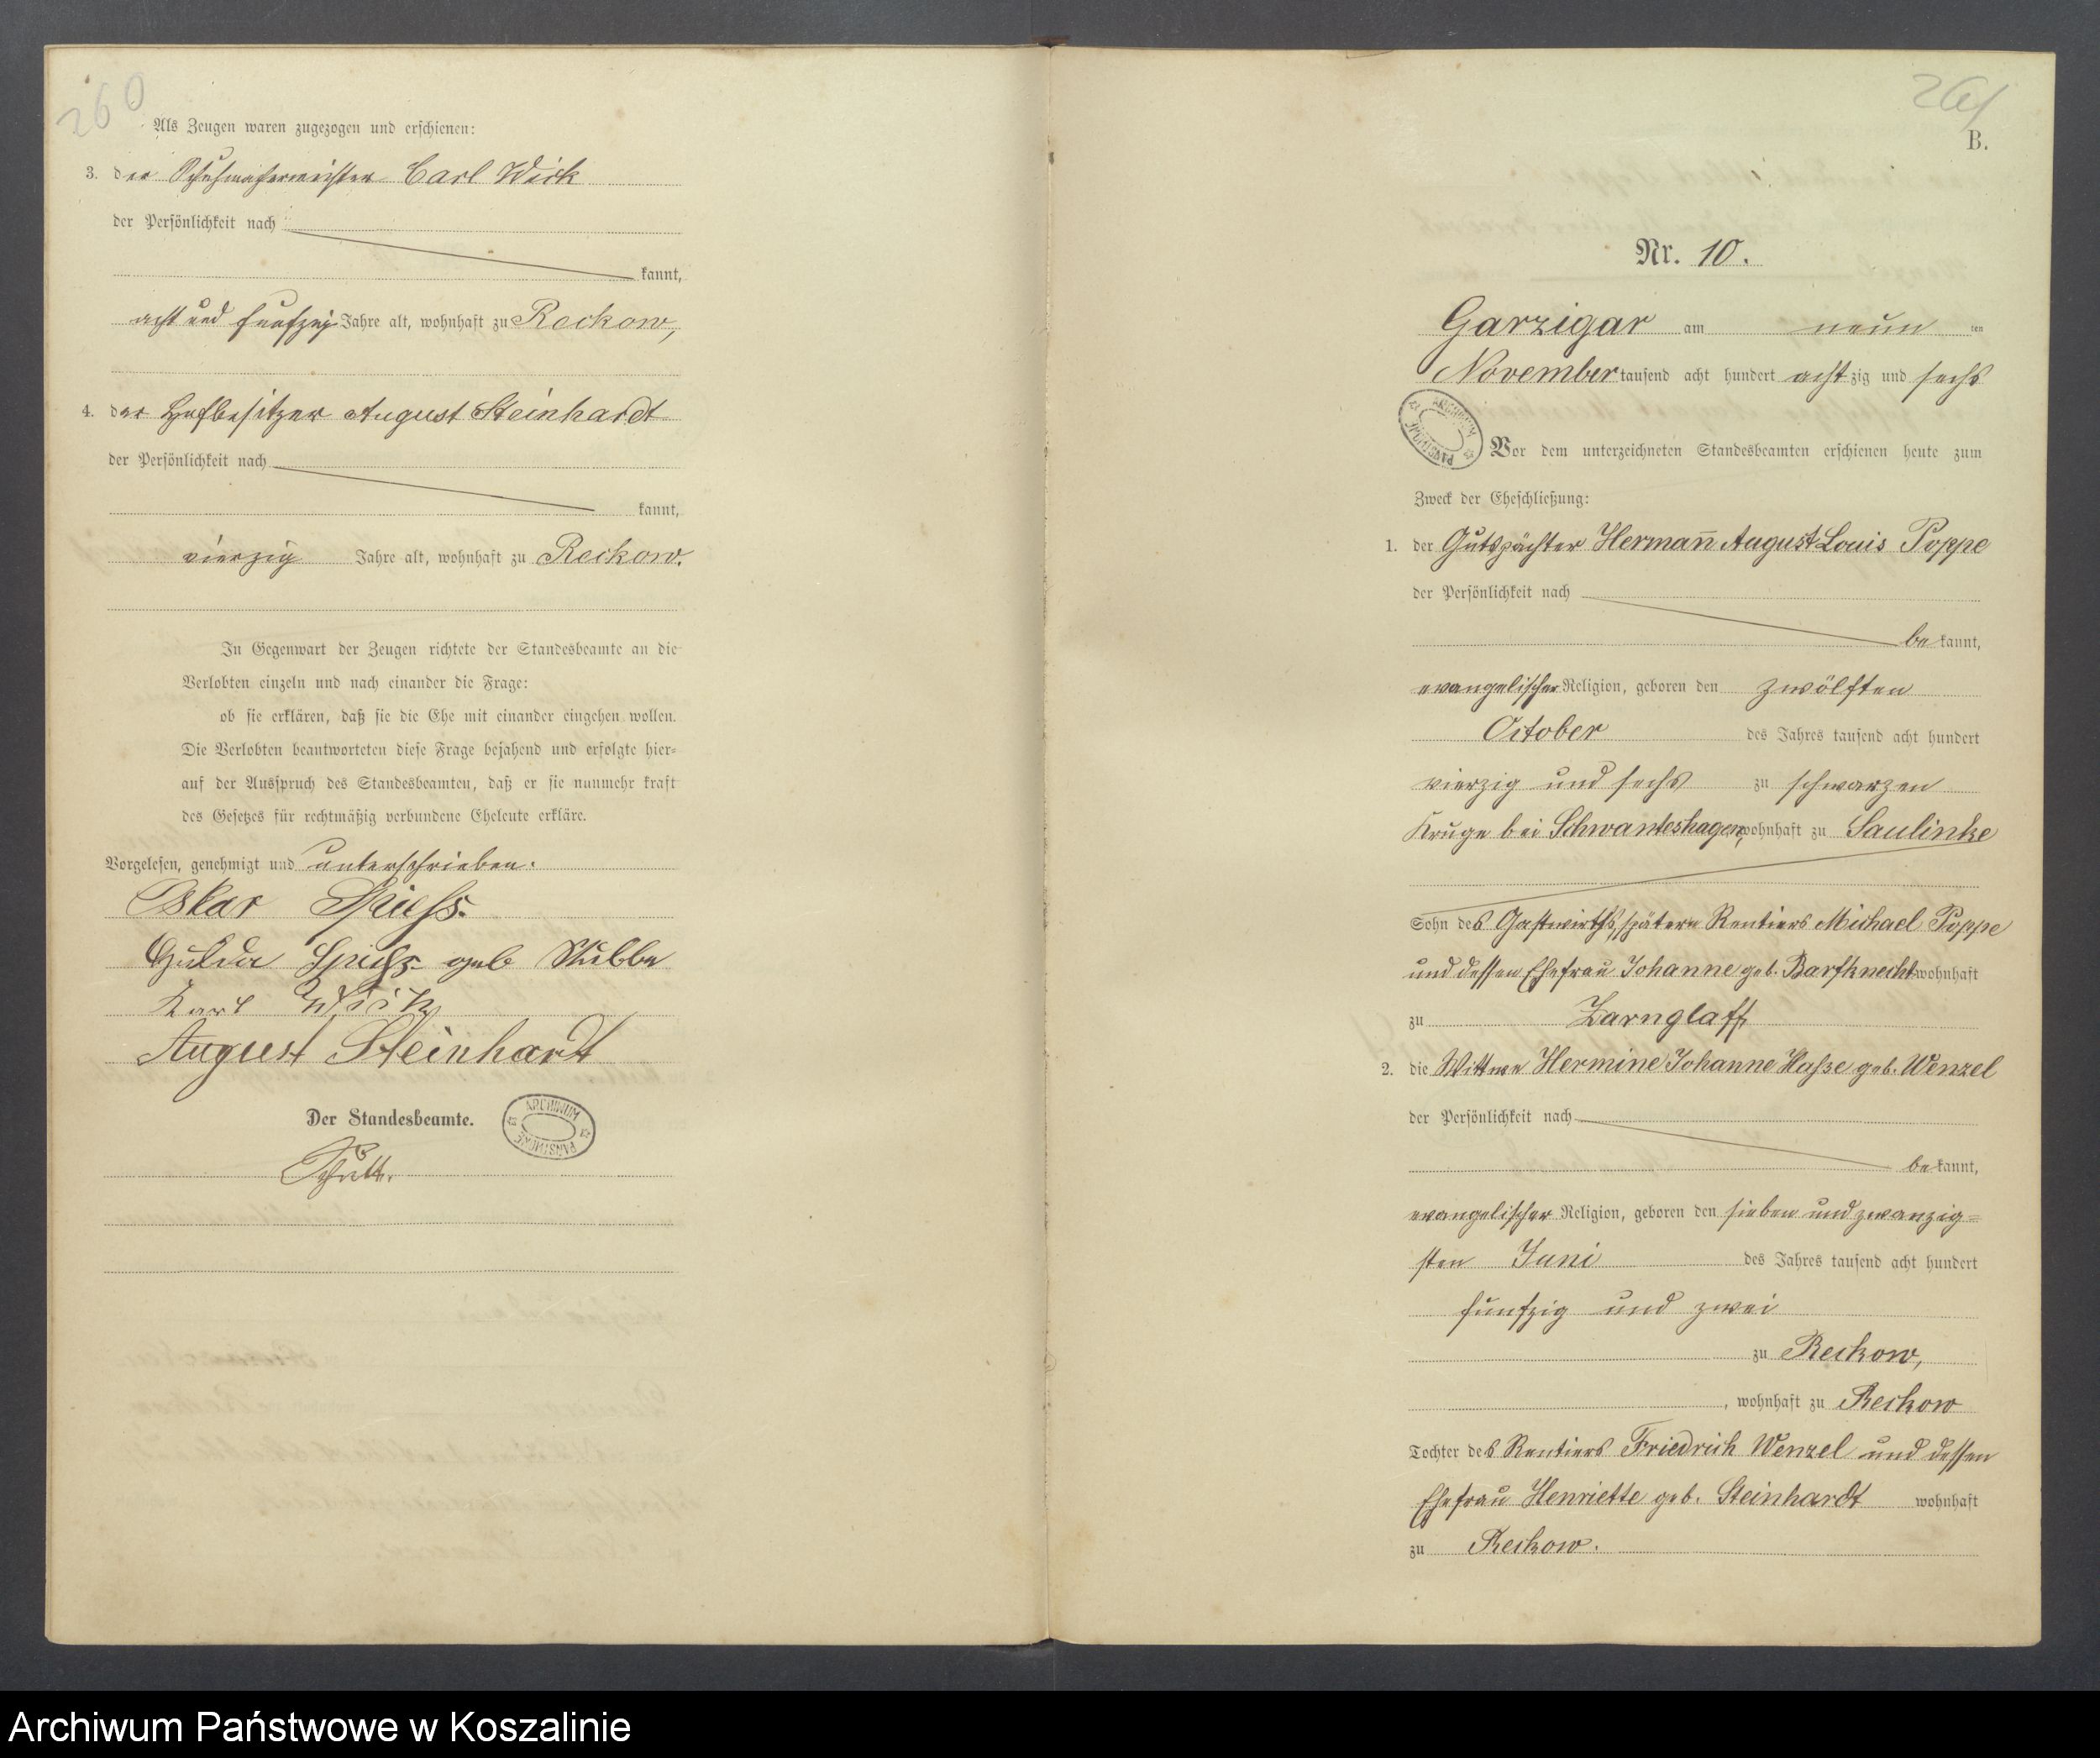 260
Als Zeugen waren zugezogen und erschienen:
3. der Schuhmachermeister Carl Wick
der Persönlichkeit nach
kannt,
acht und funfzig Jahre alt, wohnhaft zu Reckow,
4. der Hofbesitzer August Steinhardt
der Persönlichkeit nach
kannt,
vierzig Jahre alt, wohnhaft zu Reckow.
In Gegenwart der Zeugen richtete der Standesbeamte an die
Verlobten einzeln und nach einander die Frage:
ob sie erklären, daß sie die Ehe mit einander eingehen wollen.
Die Verlobten beantworteten diese Frage bejahend und erfolgte hier-
auf der Ausspruch des Standesbeamten, daß er sie nunmehr kraft
des Gesetzes für rechtmäßig verbundene Eheleute erkläre.
Vorgelesen, genehmigt und unterschrieben.
Oskar Spiess.
Hulda Spiess geb Stubbe
Karl Wick
August Steinhardt
Der Standesbeamte.
ARCHIWUM PAŃSTWOWE
261
B.
Nr. 10.
Garzigar am neun ten
November tausend acht hundert acht zig und sechs
ARCHIWUM PAŃSTWOWE
Vor dem unterzeichneten Standesbeamten erschienen heute zum
Zweck der Eheschließung:
1. der Gutspächter Hermann̄ August Louis Poppe
der Persönlichkeit nach
be kannt,
evangelischer Religion, geboren den zwölften
October des Jahres tausend acht hundert
vierzig und sechs zu schwarzen
Kruge bei Schwanteshagen, wohnhaft zu Saulinke
Sohn des Gastwirths, später Rentiers Michael Poppe
und dessen Ehefrau Johanne geb. Barfknecht wohnhaft
zu Zarnglaff
2. die Wittwe Hermine Johanne Hasse geb. Wenzel
der Persönlichkeit nach
be kannt,
evangelischer Religion, geboren den sieben und zwanzig=
sten Juni des Jahres tausend acht hundert
funfzig und zwei
zu Reckow,
, wohnhaft zu Reckow
Tochter des Rentiers Friedrich Wenzel und dessen
Ehefrau Henriette geb. Steinhardt wohnhaft
zu Reckow.
Archiwum Państwowe w Koszalinie